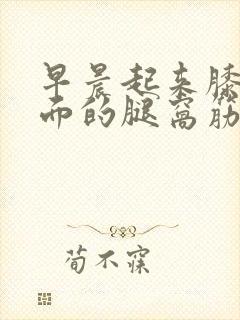 早晨起来膝
而的腿窝筋
荀不寐